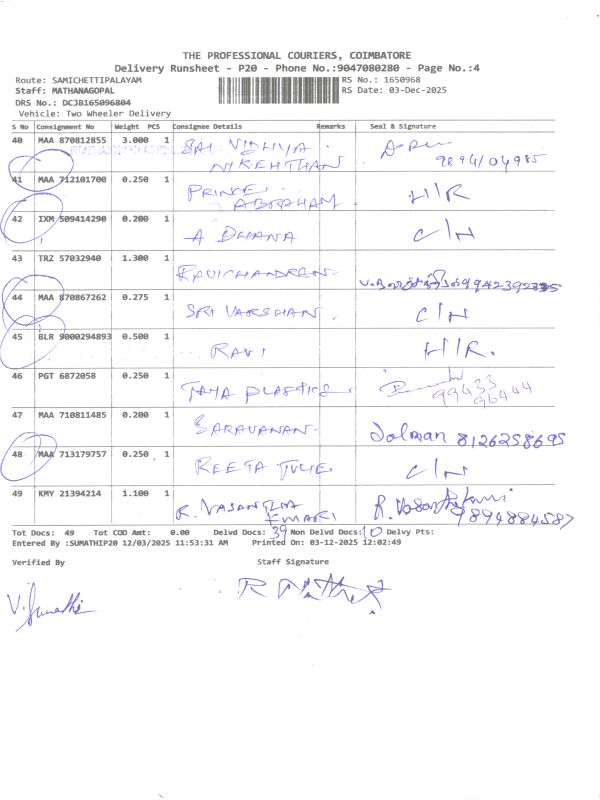 THE PROFESSIONAL COURIERS, COIMBATORE
Delivery Runsheet - P20 - Phone No.:9047080280 - Page No.:4
Route: SAMICHETTIPALAYAM RS No.: 1650968
Staff: MATHANAGOPAL RS Date: 03-Dec-2025
DRS No.: DCJB165096804
Vehicle: Two Wheeler Delivery
S No Consignment No Weight PCS Consignee Details Remarks Seal & Signature
40 MAA 870812855 3.000 1 SRI VIDHYA
NIKEHTHAN
41 MAA 712101700 0.250 1 PRINCE H/R
ABRAHAM
42 IXM 509414290 0.200 1 A DHANA C/H
43 TRZ 57032940 1.300 1 RAVICHANDRAN
44 MAA 870867262 0.275 1 SRI VARSHAN C/H
45 BLR 9000294893 0.500 1 RAVI H/R.
46 PGT 6872058 0.250 1 PLASTICS 99433
96444
47 MAA 710811485 0.200 1 SARAVANAN 8126258695
48 MAA 713179757 0.250 1 REETA JULIE C/H
49 KMY 21394214 1.100 1 R. VASANTHA R. Vasanthakumari
KUMARI 9894884587
Tot Docs: 49 Tot COD Amt: 0.00 Delvd Docs: 39 Non Delvd Docs: 10 Delvy Pts:
Entered By :SUMATHIP20 12/03/2025 11:53:31 AM Printed On: 03-12-2025 12:02:49
Verified By Staff Signature
V. Sumathi